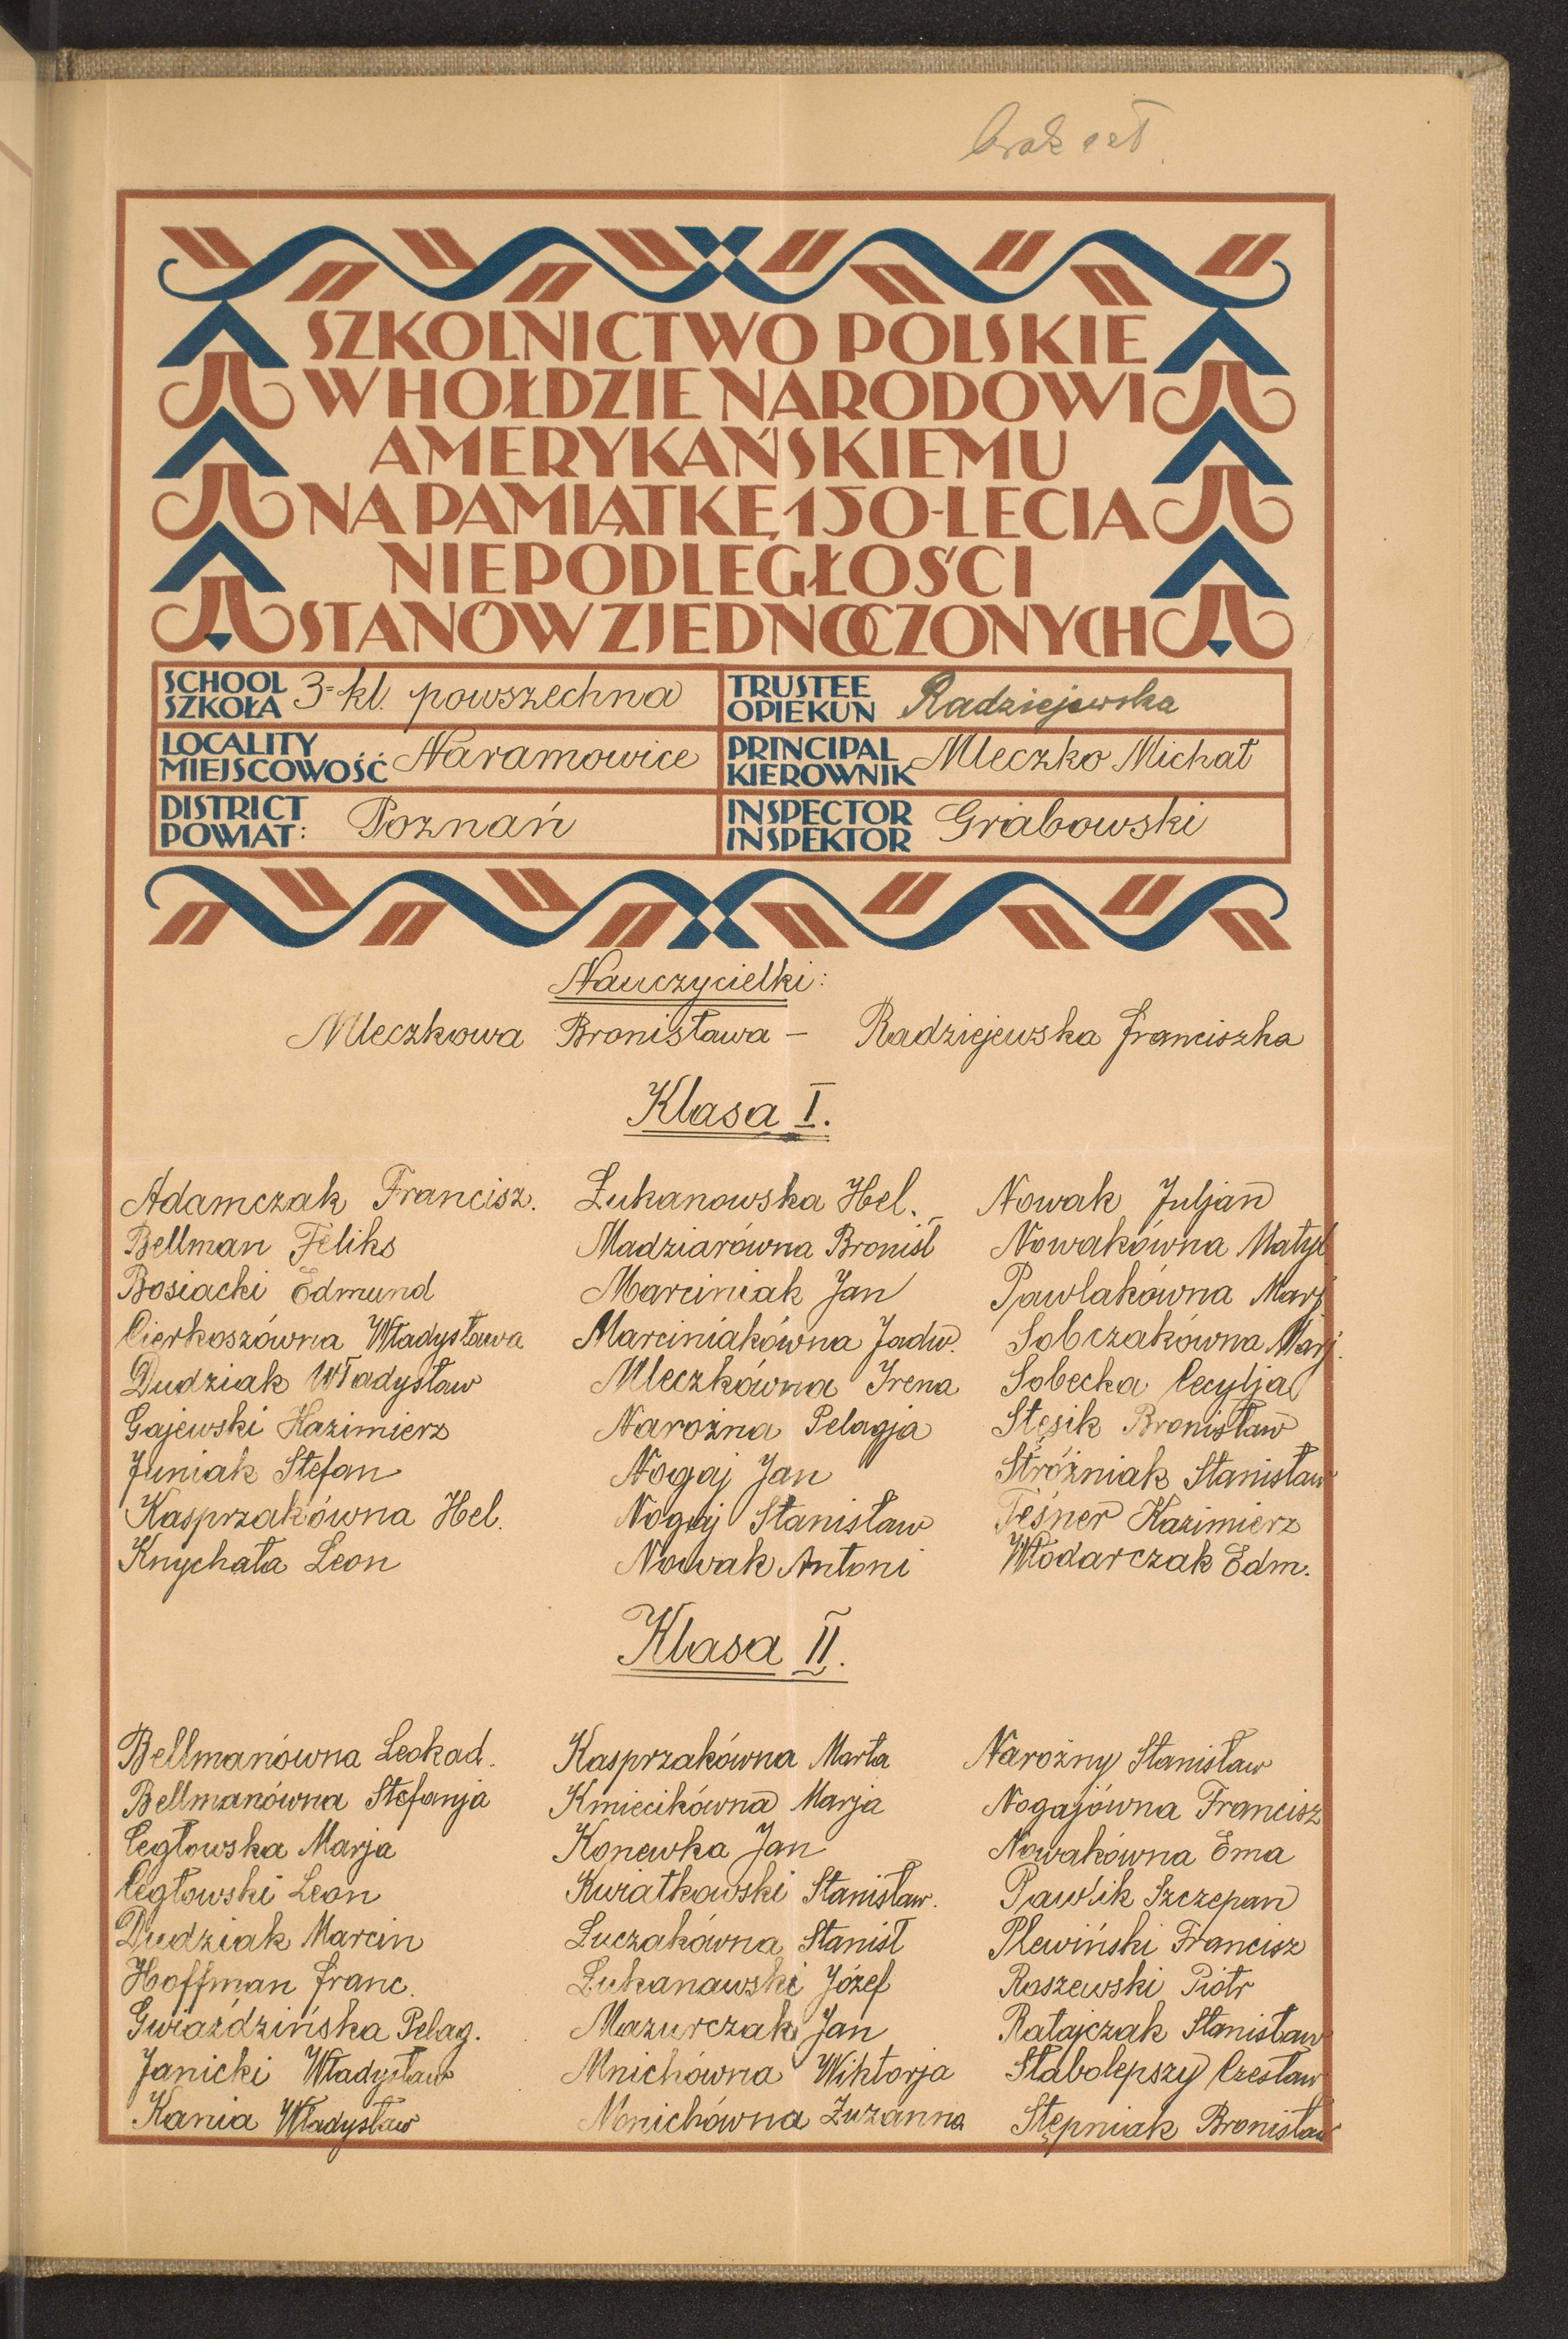 SZKOLNICTWO POLSKIE
W HOŁDZIE NARODOWI
AMERYKAŃSKIEMU
NA PAMIĄTKĘ 150-LECIA
NIEPODLEGŁOŚCI
STANÓW ZJEDNOCZONYCH
SCHOOL SZKOŁA 3-kl. powszechna
TRUSTEE OPIEKUN Radziejewska
LOCALITY MIEJSCOWOŚĆ Naramowice
PRINCIPAL KIEROWNIK Mleczko Michał
DISTRICT POWIAT: Poznań
INSPECTOR INSPEKTOR Grabowski
Nauczycielki:
Mleczkowa Bronisława – Radziejewska Franciszka
Klasa I.
Adamczak Francisz.
Bellman Feliks
Bosiacki Edmund
Cierkoszówna Władysława
Dudziak Władysław
Gajewski Kazimierz
Juniak Stefan
Kasprzakówna Hel.
Knychała Leon
Łukanowska Hel.
Madziarówna Bronisł
Marciniak Jan
Marciniakówna Jadw.
Mleczkówna Irena
Narożna Pelagja
Nogaj Jan
Nogaj Stanisław
Nowak Antoni
Nowak Juljan
Nowakówna Matyl
Pawlakówna Marj
Sobczakówna Marj.
Sobecka Cecylja
Stęsik Bronisław
Stróżniak Stanisław
Teśner Kazimierz
Włodarczak Edm.
Klasa II.
Bellmanówna Leokad.
Bellmanówna Stefanja
Cegłowska Marja
Cegłowski Leon
Dudziak Marcin
Hoffman Franc.
Gwiaździńska Pelag.
Janicki Władysław
Kania Władysław
Kasprzakówna Marta
Kmiecikówna Marja
Konewka Jan
Kwiatkowski Stanisław.
Łuczakówna Stanisł
Łukanawski Józef
Mazurczak Jan
Mnichówna Wiktorja
Mnichówna Zuzanna
Narożny Stanisław
Nogajówna Francisz
Nowakówna Ema
Pawlik Szczepan
Plewiński Francisz
Raszewski Piotr
Ratajczak Stanisław
Słabolepszy Czesław
Stępniak Bronisław